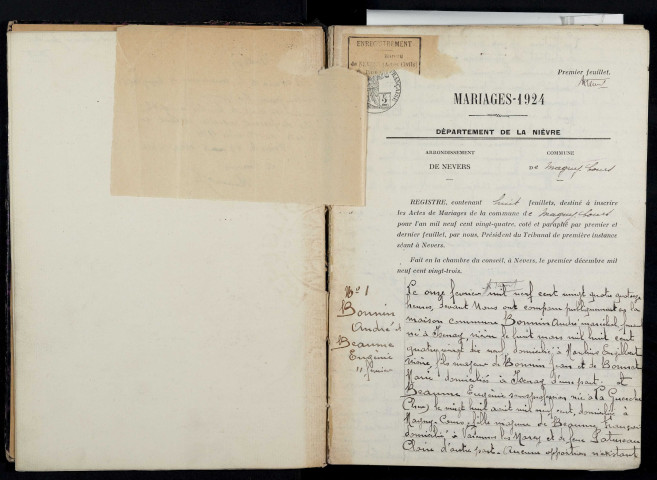 ENREGISTREMENT
FRANÇAISE
5
Premier feuillet.
MARIAGES-1924
DÉPARTEMENT DE LA NIÈVRE
ARRONDISSEMENT
DE NEVERS
COMMUNE
DE Magny Cours
REGISTRE, contenant huit feuillets, destiné à inscrire
les Actes de Mariages de la commune de Magny Cours
pour l'an mil neuf cent vingt-quatre, coté et paraphé par premier et
dernier feuillet, par nous, Président du Tribunal de première instance
séant à Nevers.
Fait en la chambre du conseil, à Nevers, le premier décembre mil
neuf cent vingt-trois.
No 1
Bonnin
André &
Beaune
Eugénie
11 février
Le onze février mil neuf cent vingt quatre quatorze
heures, devant Nous ont comparu publiquement en la
maison commune Bonnin André maréchal
né à Isenay, nièvre le huit mars mil huit cent
quatre vingt dix neuf domicilié à
nièvre, fils majeur de Bonnin Jean et de
Marie domiciliés à Isenay d'une part, et
Beaune Eugénie sans profession née à La Guerche
(Cher) le vingt huit août mil neuf cent, domiciliée à
Magny-Cours, fille majeure de Beaune François
domicilié à Varennes les Narcy et de feue
Claire d'autre part. Aucune opposition n'existant